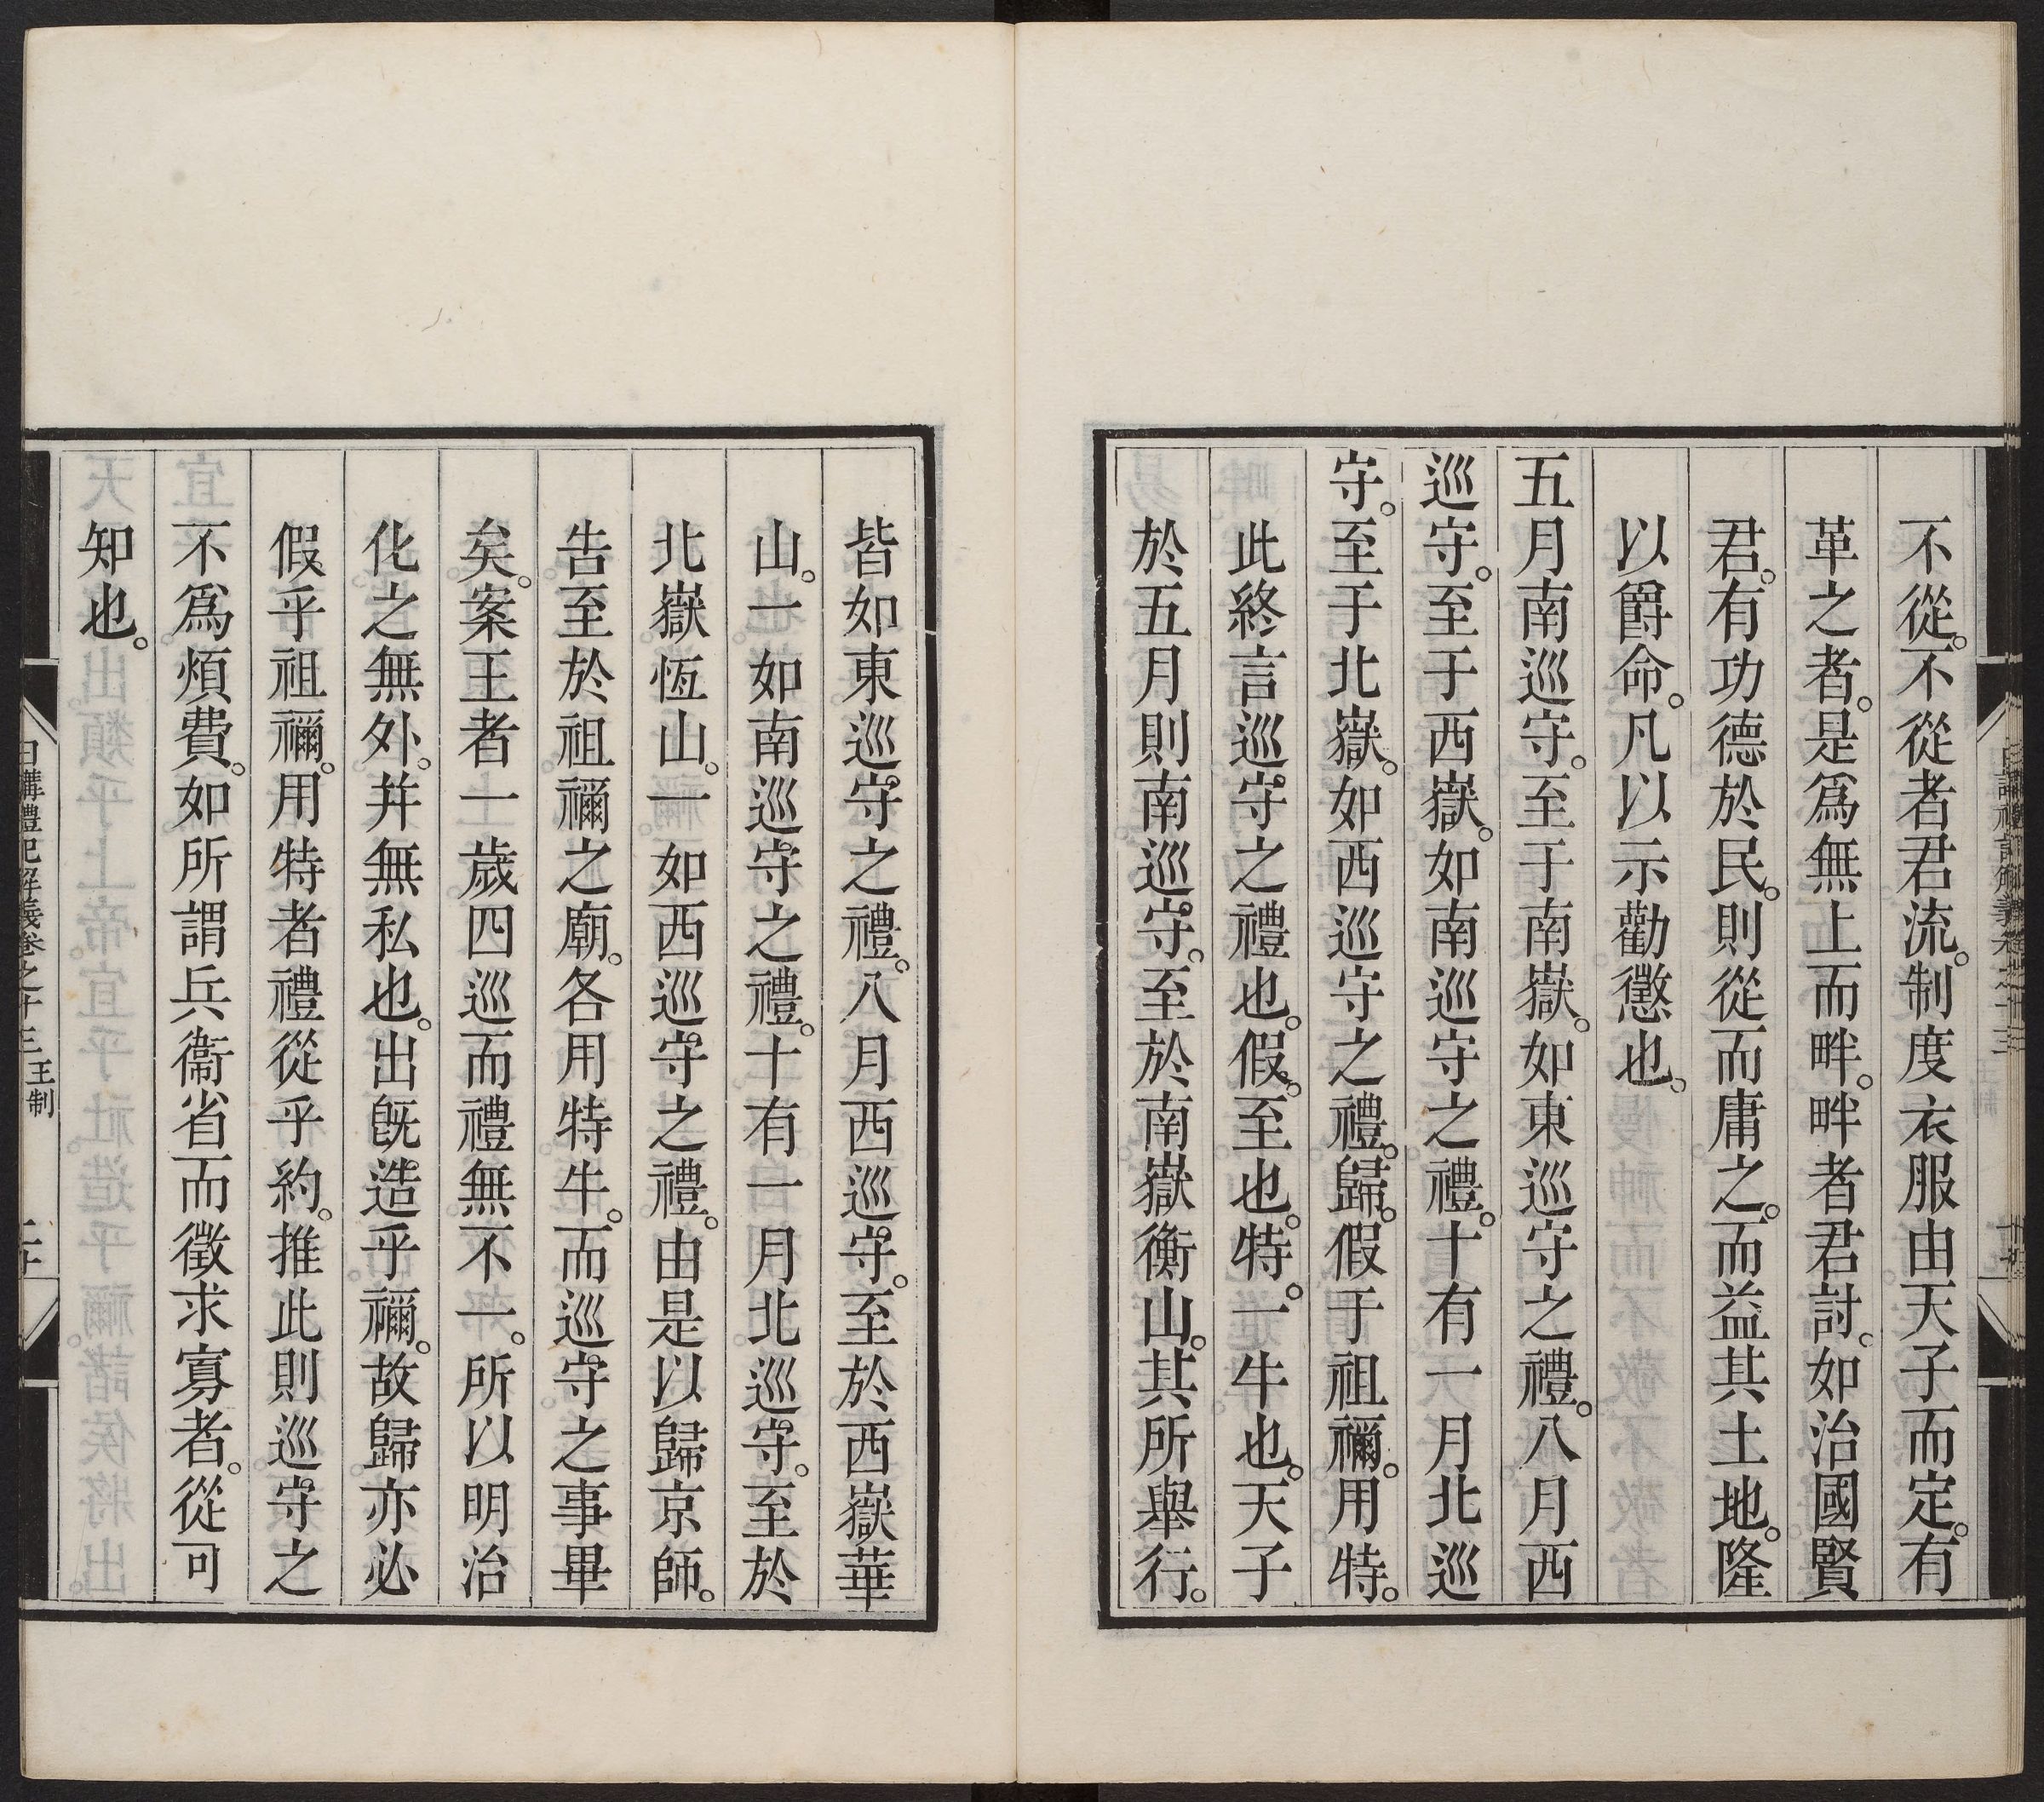 不從。不從者君流。制度衣服由天子而定。有
革之者。是爲無上而畔。畔者君討。如治國賢
君。有功德於民。則從而庸之。而益其土地。隆
以爵命。凡以示勸懲也。
五月南巡守。至于南嶽。如東巡守之禮。八月西
巡守。至于西嶽。如南巡守之禮。十有一月北巡
守。至于北嶽。如西巡守之禮。歸。假于祖禰。用特。
此終言巡守之禮也。假。至也。特。一牛也。天子
於五月則南巡守。至於南嶽衡山。其所舉行。
皆如東巡守之禮。八月西巡守。至於西嶽華
山。一如南巡守之禮。十有一月北巡守。至於
北嶽恆山。一如西巡守之禮。由是以歸京師。
告至於祖禰之廟。各用特牛。而巡守之事畢
矣。案王者一歲四巡而禮無不一。所以明治
化之無外。幷無私也。出旣造乎禰。故歸亦必
假乎祖禰。用特者禮從乎約。推此則巡守之
不爲煩費。如所謂兵衞省而徵求寡者。從可
知也。
日講禮記解義卷之十三 王制